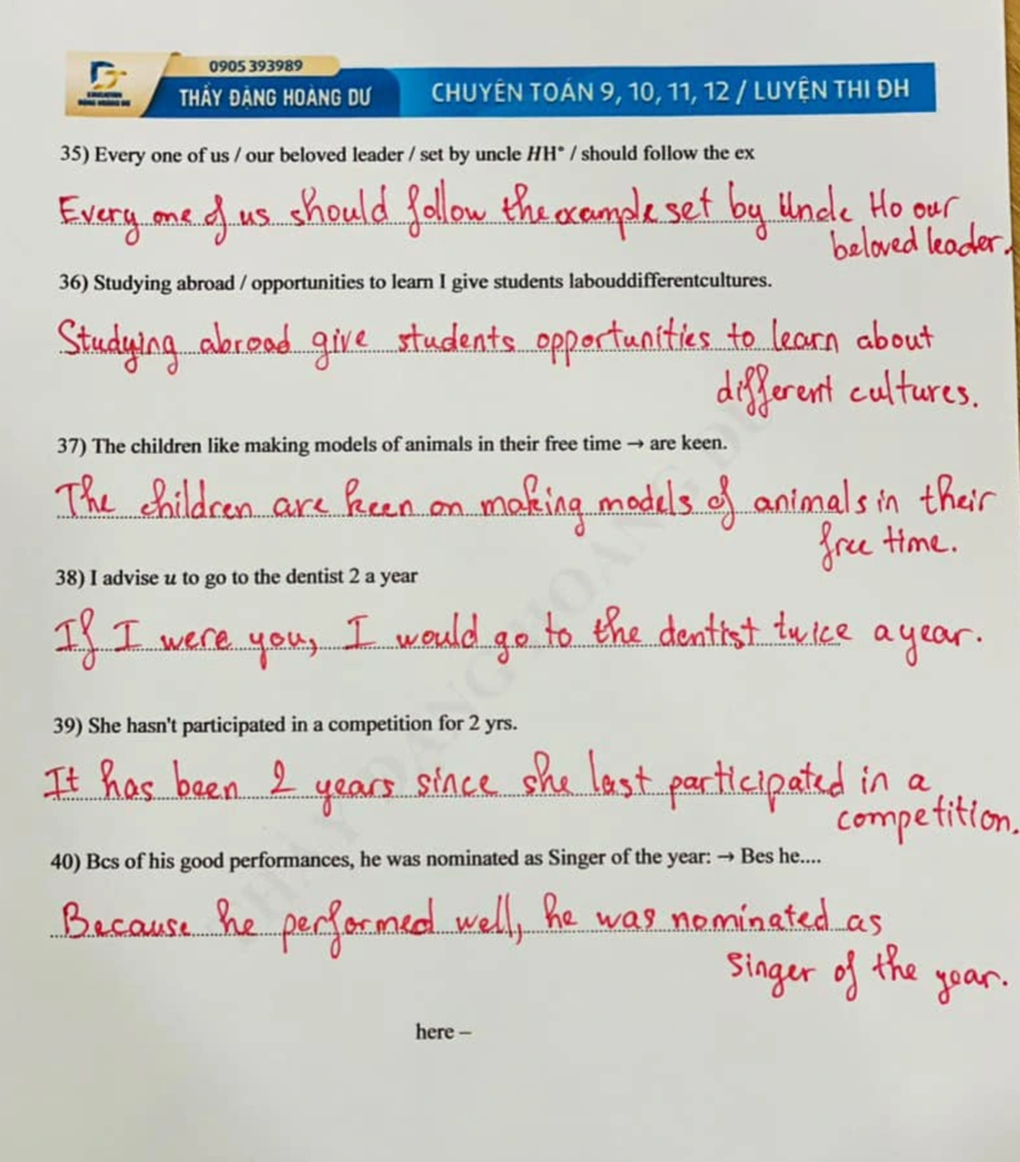 0905 393989
THẦY ĐẶNG HOÀNG DƯ
CHUYÊN TOÁN 9, 10, 11, 12 / LUYỆN THI ĐH
35) Every one of us / our beloved leader / set by uncle HH° / should follow the ex
Every one of us should follow the example set by Uncle Ho our
beloved leader.
36) Studying abroad / opportunities to learn I give students labouddifferentcultures.
Studying abroad give students opportunities to learn about
different cultures.
37) The children like making models of animals in their free time → are keen.
The children are keen on making models of animals in their
free time.
38) I advise u to go to the dentist 2 a year
If I were you, I would go to the dentist twice a year.
39) She hasn't participated in a competition for 2 yrs.
It has been 2 years since she last participated in a
competition.
40) Bcs of his good performances, he was nominated as Singer of the year: → Bes he....
Because he performed well, he was nominated as
singer of the year.
here –
THẦY ĐẶNG HOÀNG DƯ